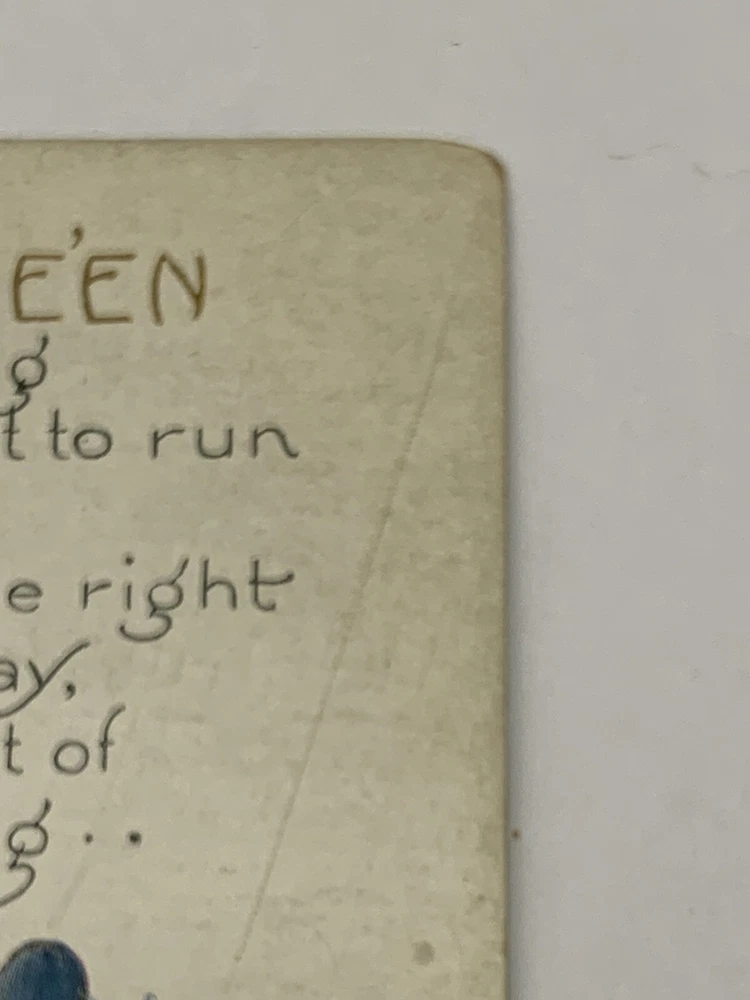 E'EN
g
t to run
e right
ay,
t of
g . .